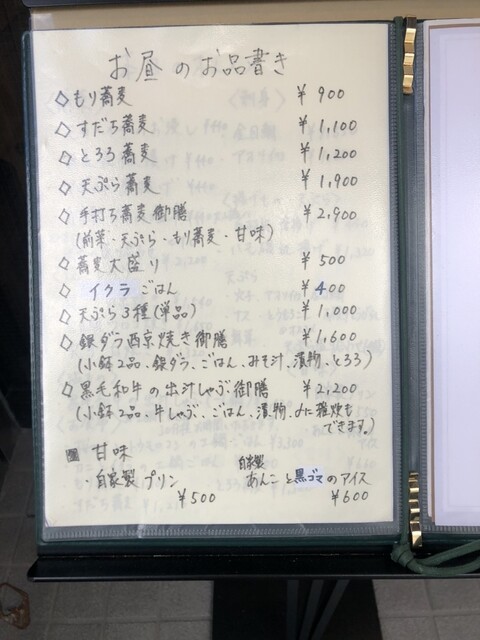 お昼のお品書き
◇もり蕎麦 ¥900
◇すだち蕎麦 ¥1,100
◇とろろ蕎麦 ¥1,200
◇天ぷら蕎麦 ¥1,900
◇手打ち蕎麦御膳 ¥2,900
(前菜・天ぷら・もり蕎麦・甘味)
◇蕎麦大盛り ¥500
◇イクラごはん ¥400
◇天ぷら3種(単品) ¥1,000
◇銀ダラ西京焼き御膳 ¥1,600
(小鉢2品、銀ダラ、ごはん、みそ汁、漬物、とろろ)
◇黒毛和牛の出汁しゃぶ御膳 ¥2,200
(小鉢2品、牛しゃぶ、ごはん、漬物、〆に雑炊も
できます。)
甘味
・自家製プリン ¥500
自家製
あんこと黒ゴマのアイス
¥600